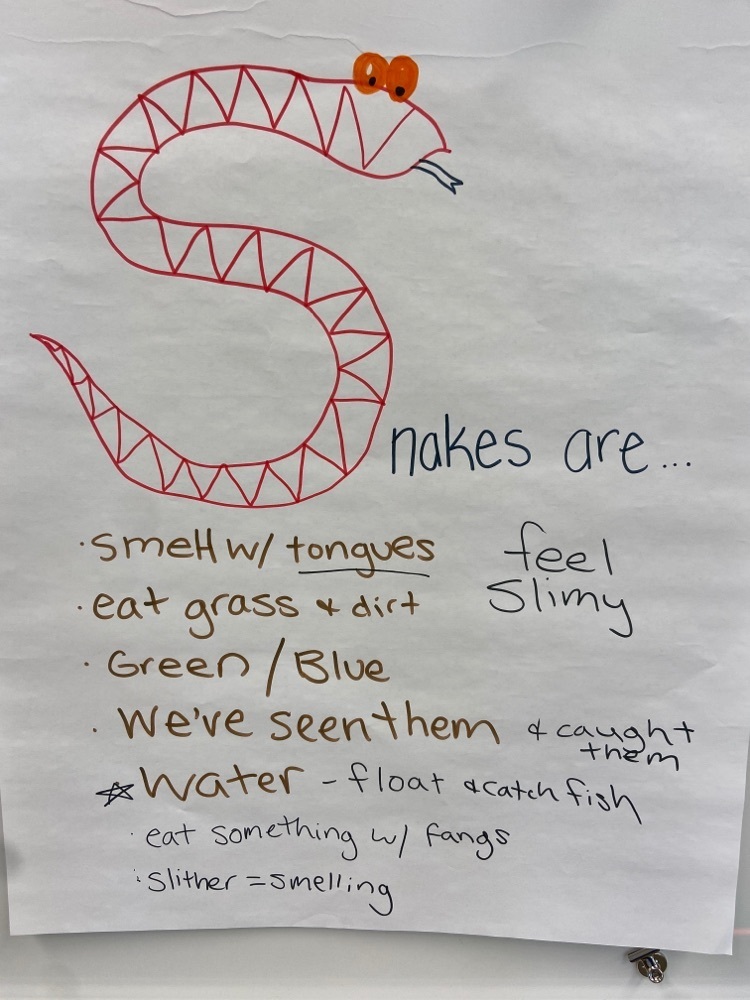 Snakes are...
· smell w/ tongues
feel
slimy
· eat grass & dirt
· Green / Blue
· We've seen them & caught
them
☆ Water - float & catch fish
· eat something w/ fangs
: Slither = smelling